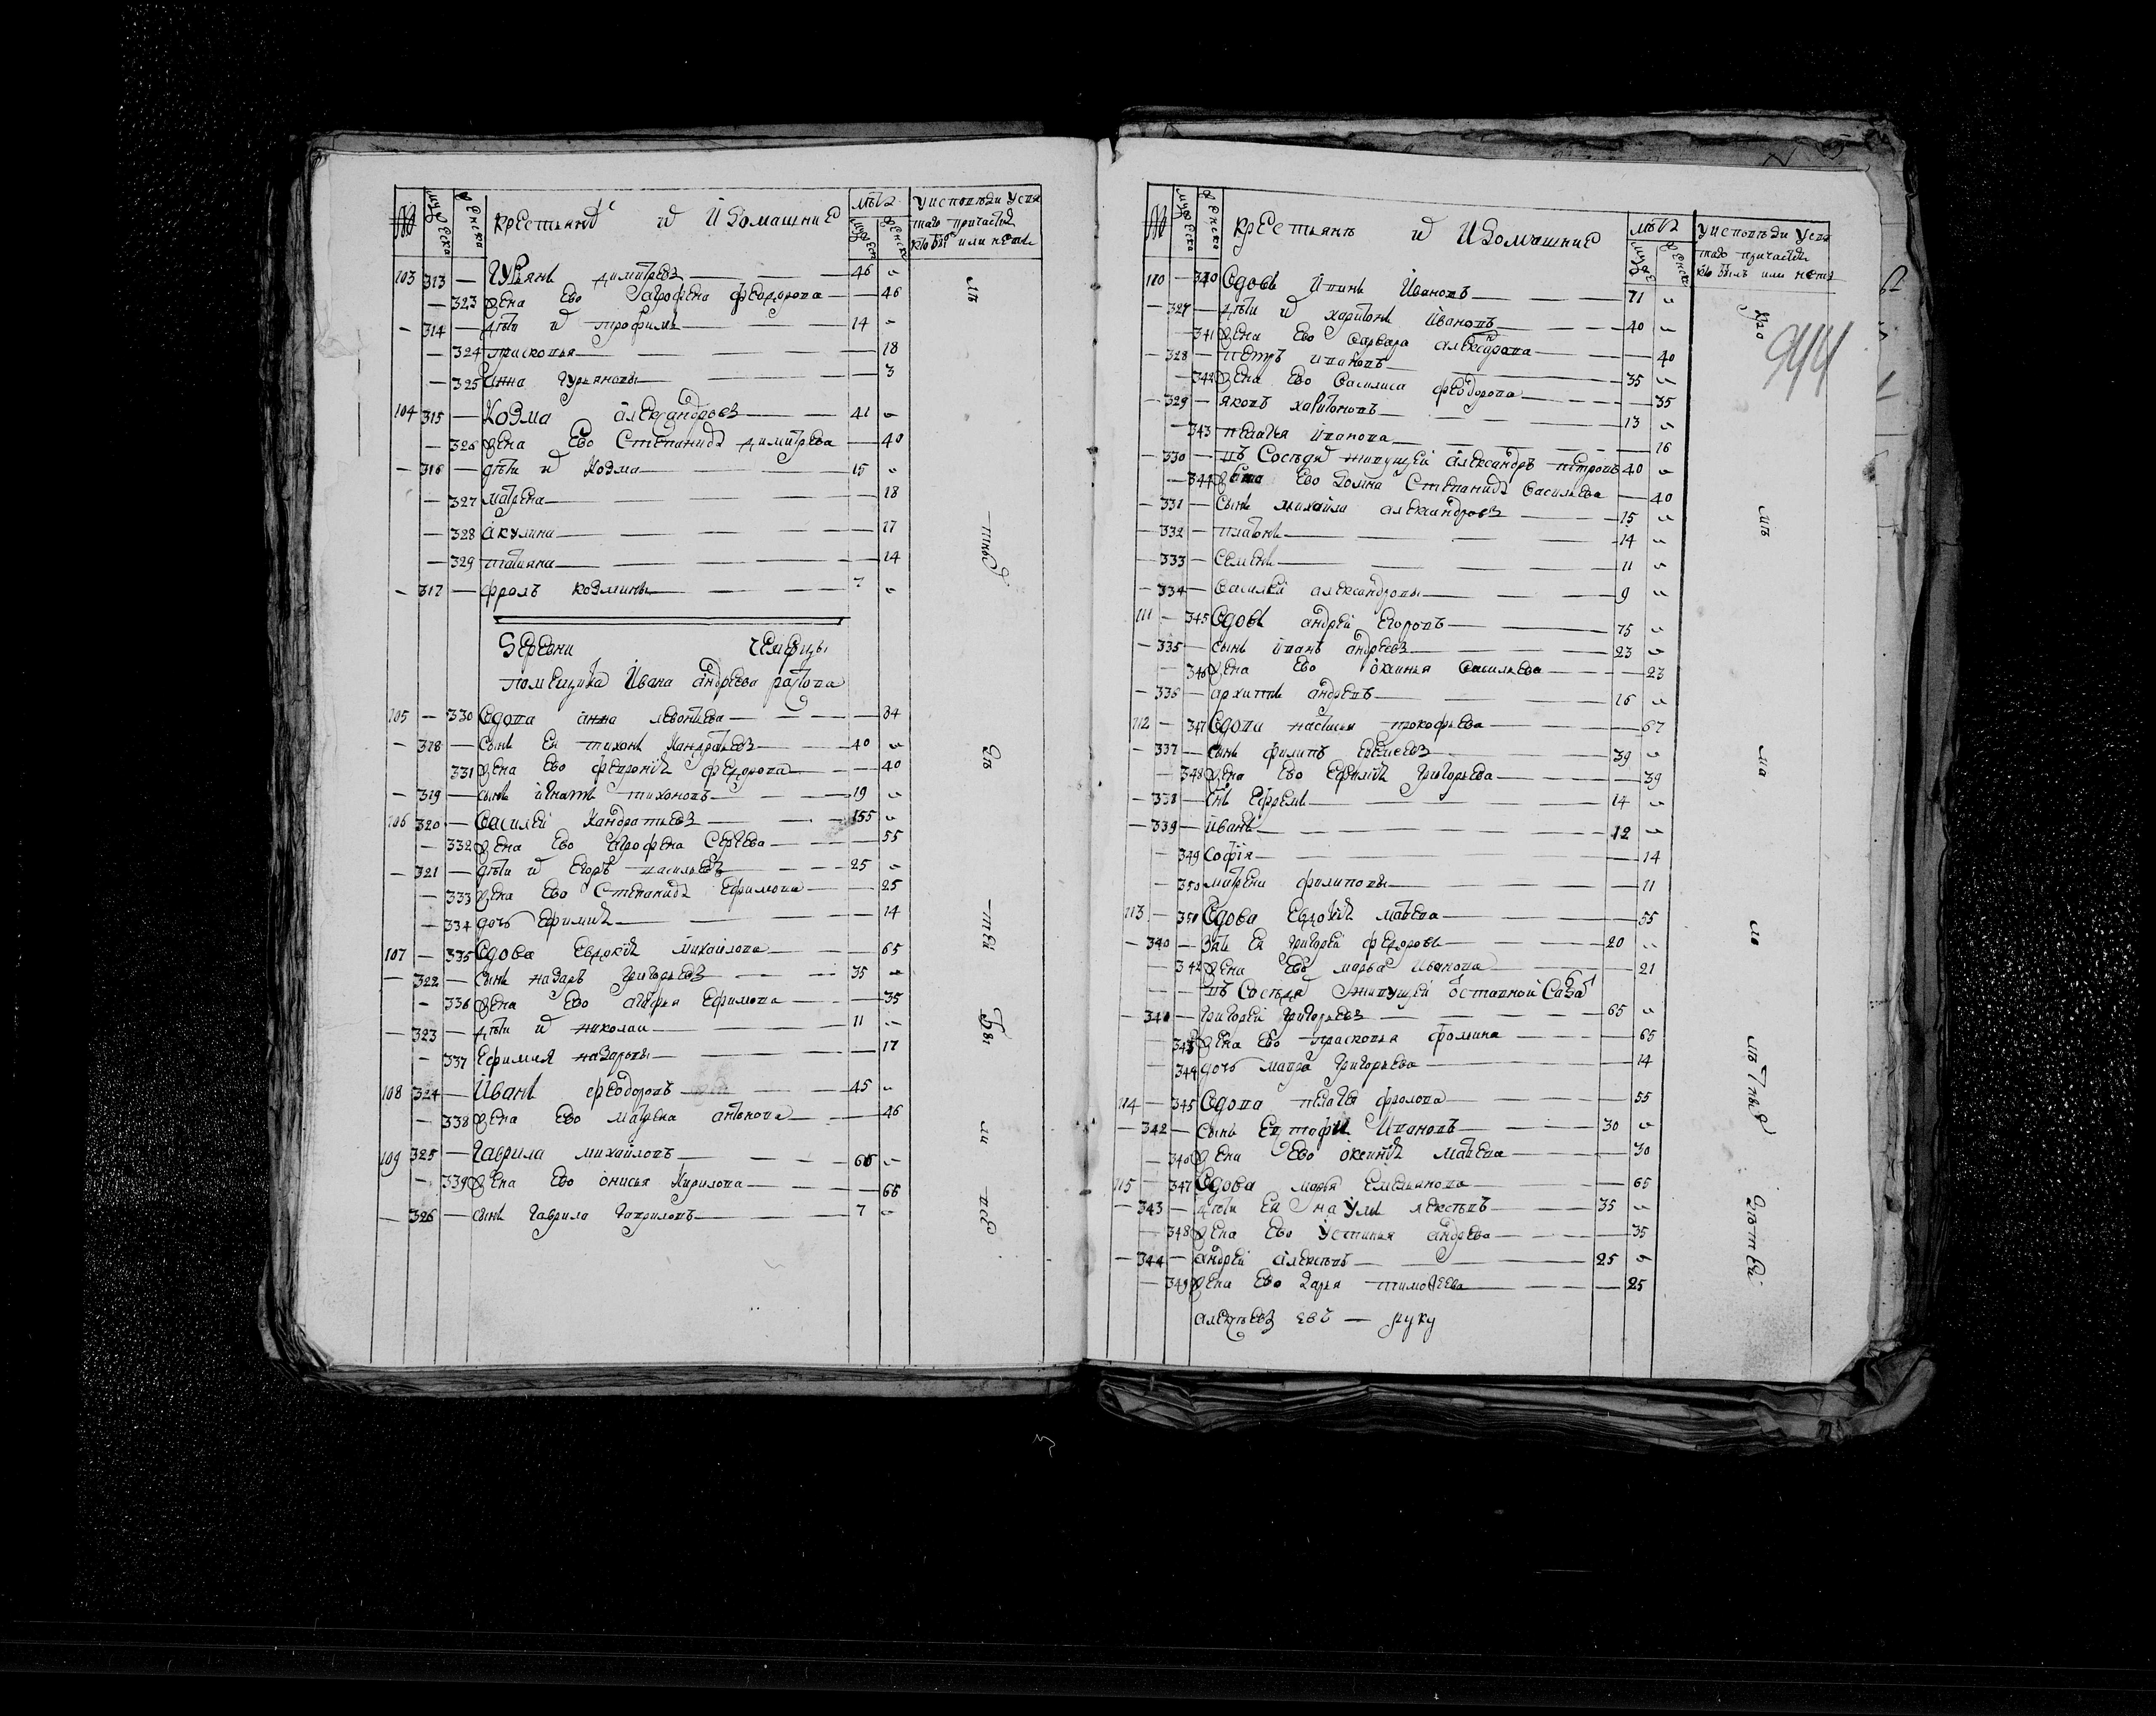 № мужеска женска крестьянъ их и Домашние мужеск женск
у исповеди и у святаго причастия кто былъ или нетъ
103 313 — Гурьянъ димитревъ — 46
— 323 жена Ево Агрофена феодорова — 46
— 314 — дети их трофимъ — 14
— 324 прасковья — 18
— 325 анна Гурьяновы — 3
104 315 — Козма александровъ — 41
— 326 жена Ево Степанида димитрева — 40
— 316 — дети их Козма — 15
— 327 матрена — 18
— 328 акулина — 17
— 329 татияна — 14
— 317 — фролъ козмины — 7
Деревни
помещика Ивана андреева
105 — 330 вдова анна левонтева — 84
— 318 — сынъ Ея тихонъ Кандратьевъ — 40
331 жена Ево феврония федорова — 40
— 319 — сынъ игнатъ тихоновъ — 19
106 320 — василей Кандратьевъ — 55
— 332 жена Ево Агрофена Сергева — 55
— 321 — дети их Егоръ васильевъ — 25
— 333 жена Ево Степанида Ефимова — 25
— 334 дочь Ефимия — 14
107 — 335 вдова Евдокия михайлова — 65
— 322 — сынъ назаръ григорьевъ — 35
— 336 жена Ево агафья Ефимова — 35
— 323 — дети их николаи — 11
— 337 Ефимия назаровы — 17
108 324 — Иванъ феодоровъ — 45
— 338 жена Ево матрена антонова — 46
109 325 — Гаврила михайловъ — 66
— 339 жена Ево онисья Кирилова — 66
— 326 — сынъ Гаврила Гавриловъ — 7
№ мужеска женска крестьянъ их и Домашние мужеск женск
у исповеди и у святаго причастия кто былъ или нетъ
944
110 — 340 вдовъ Иванъ Ивановъ — 71
— 327 — дети их харитонъ Ивановъ — 40
341 жена Ево варвара александрова — 40
— 328 — петръ ивановъ — 35
342 жена Ево василиса феодорова — 35
— 329 — яковъ харитоновъ — 13
— 343 пелагея иванова — 16
— 330 — въ Соседях живущей александръ петровъ 40
— 344 жена Ево Степанида васильева — 40
— 331 — сынъ михайла александровъ — 15
— 332 — платонъ — 14
— 333 — Семенъ — 11
— 334 — василей александровы — 9
111 — 345 вдовъ андрей Егоровъ — 75
— 335 — сынъ иванъ андреевъ — 23
— 346 жена Ево оксинья васильева — 23
— 336 — архипъ андревъ — 16
112 — 347 вдова настасья прокофьева — 67
— 337 — сынъ филипъ — 39
— 348 жена Ево Ефимия григорьева — 39
— 338 — Ефремъ — 14
— 339 — иванъ — 12
— 349 софия — 14
— 350 матрена филиповы — 11
113 — 351 вдова Евдокия матвева — 55
— 340 — зять Ея григорей федоровъ — 20
— 342 жена Ево марья Иванова — 21
— въ Соседях живущей
— 340 — григорей григорьевъ — 65
343 жена Ево прасковья фомина — 65
344 дочь мавра григорьева — 14
114 — 345 вдова пелагея фролова — 55
— 342 — сынъ Евтафи Ивановъ — 30
— 340 жена Ево оксиния матвева — 30
115 — 347 вдова марья Емельянова — 65
— 343 — дети Ея наумъ — 35
— 348 жена Ево устинья андрева — 35
— 344 — андрей алексевъ — 25
— 349 жена Ево Дарья тимофеева — 25
— руку